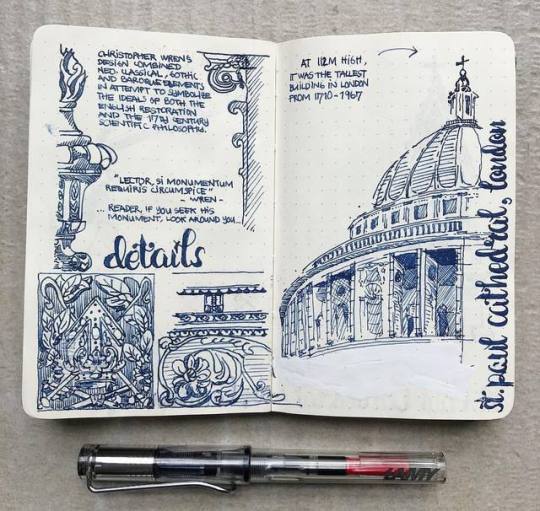 CHRISTOPHER WREN'S
DESIGN COMBINED
NEO CLASSICAL, GOTHIC
AND BAROQUE ELEMENTS
IN ATTEMPT TO SYMBOLIZE
THE IDEALS OF BOTH THE
ENGLISH RESTORATION
AND THE 17TH CENTURY
SCIENTIFIC PHILOSOPHY.
"LECTOR, SI MONUMENTUM
REQUIRIS CIRCUMSPICE"
- WREN -
... READER, IF YOU SEEK HIS
MONUMENT, LOOK AROUND YOU...
details
AT 112M HIGH,
IT WAS THE TALLEST
BUILDING IN LONDON
FROM 1710-1967
st. paul cathedral, london
LAMY